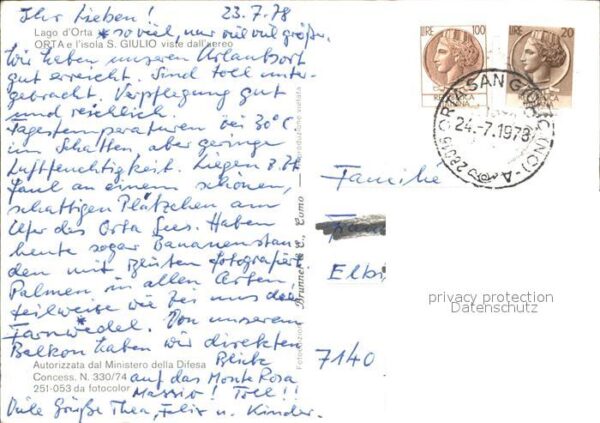 Ihr Lieben! 23.7.78
Lago d'Orta * so viel, nur viel viel größer.
ORTA e l'isola S. GIULIO viste dall'aereo
Wir haben unseren Urlaubsort
gut erreicht. Sind toll unter-
gebracht. Verpflegung gut
und reichlich.
Tagestemperaturen bei 30°C
im Schatten aber geringe
Luftfeuchtigkeit. Liegen z.Zt
faul an einem schönen,
schattigen Plätzchen am
Ufer des Orta Sees. Haben
heute sogar Bananenstau-
den mit Blüten fotografiert.
Palmen in allen Arten,
teilweise wie bei uns die
Farnwedel. * Von unserem
Balkon haben wir direkten
Autorizzata dal Ministero della Difesa Blick
Concess. N. 330/74 auf das Monte Rosa
251-053 da fotocolor Massiv! Toll!!
Viele Grüße Thea, Felix u. Kinder.
Brunner & C., Como - Riproduzione vietata
LIRE 100
LIRE 20
ORTA SAN GIULIO (NO)
24.-7.1978
Familie
Elbi
7140
privacy protection
Datenschutz